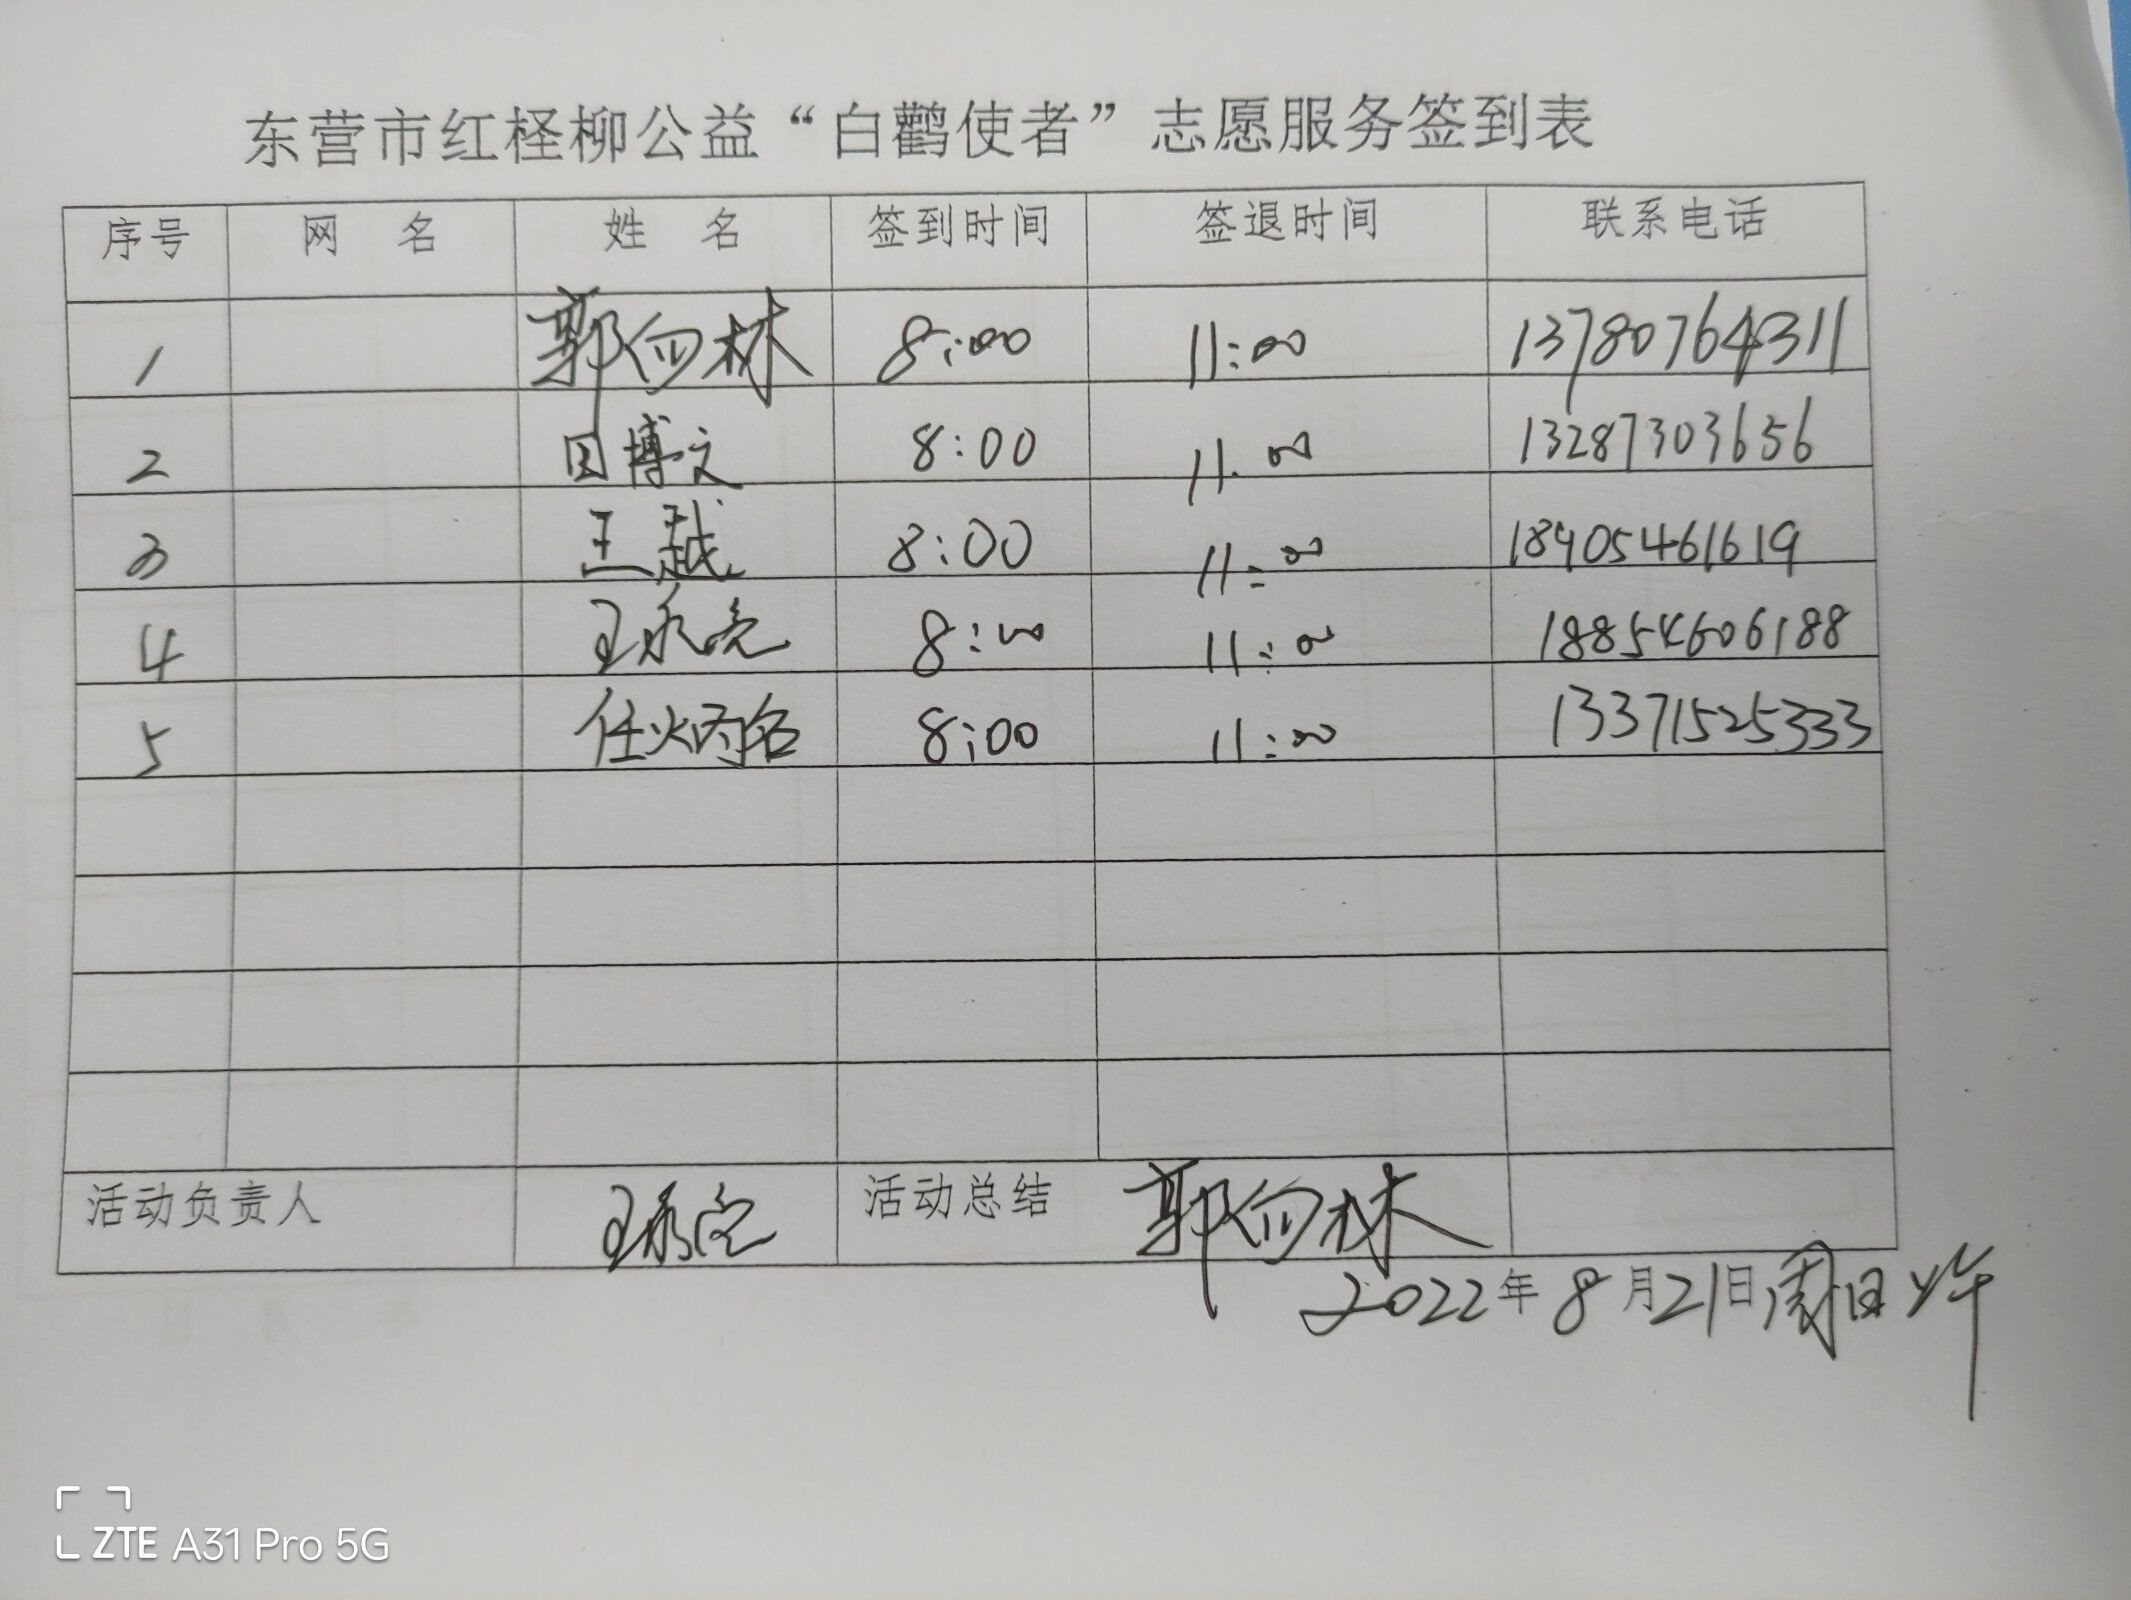 东营市红柽柳公益“白鹳使者”志愿服务签到表
序号 网 名 姓 名 签到时间 签退时间 联系电话
1 郭向林 8:00 11:00 13780764311
2 田博文 8:00 11:00 13287303656
3 王越 8:00 11:00 18905461619
4 王永亮 8:00 11:00 18854606188
5 任炳名 8:00 11:00 13371525333
活动负责人 王永亮 活动总结 郭向林
2022年8月21日周日上午
ZTE A31 Pro 5G